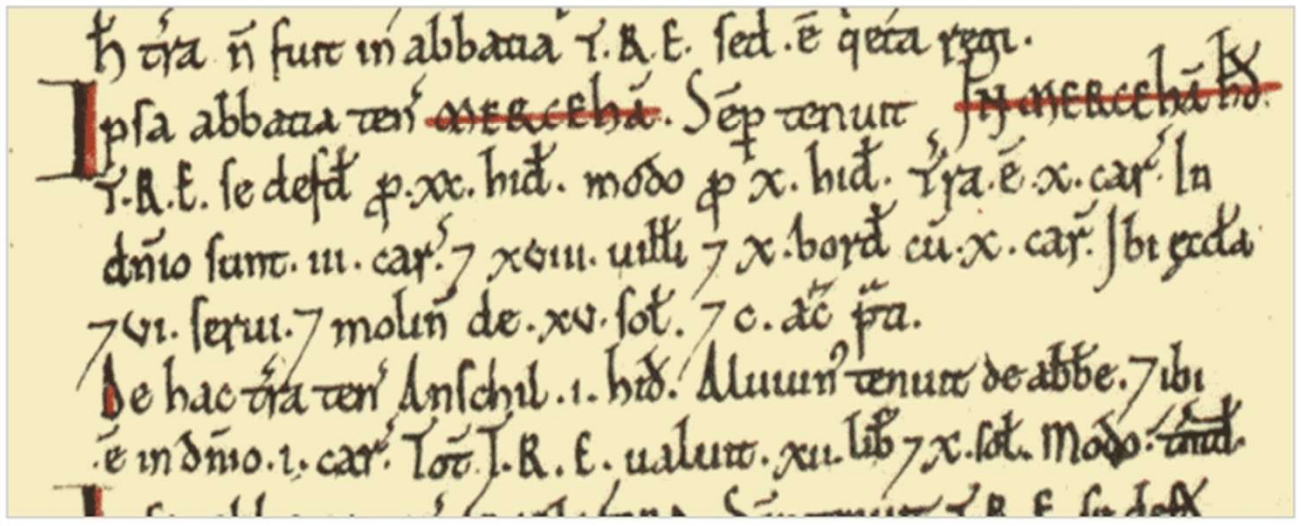 h̄ tr̄a n̄ fuit in abbatia T.R.E. sed .ē q̄eta regi.
Ipsa abbatia ten̄ MERCEHĀ. Sēp tenuit IN MERCEHĀ HĎ.
T.R.E. se defđ ꝓ .xx. hiđ. modo ꝓ x. hiđ. Tr̄a .ē .x. car̄. In
dn̄io sunt .iii. car̄. ⁊ xviii. uiłłi ⁊ x. borđ cū .x. car̄. Ibi æccła
⁊ vi. serui. ⁊ molin̄ de .xv. soł. ⁊ c. ac̄ p̄a.
De hac tr̄a ten̄ Anschil .i. hiđ. Aluuin' tenuit de abb̄e. ⁊ ibi
.ē in dn̄io .i. car̄. Tot̄ T.R.E. ualuit .xii. lib̄ ⁊ x. soł. Modo